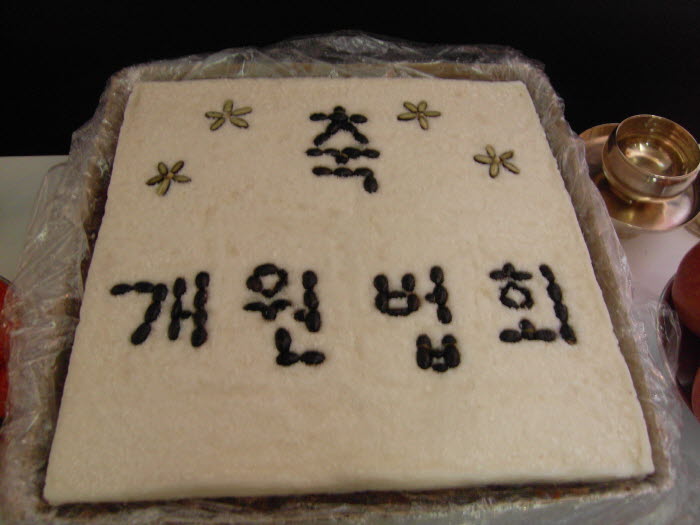 축
개원법회